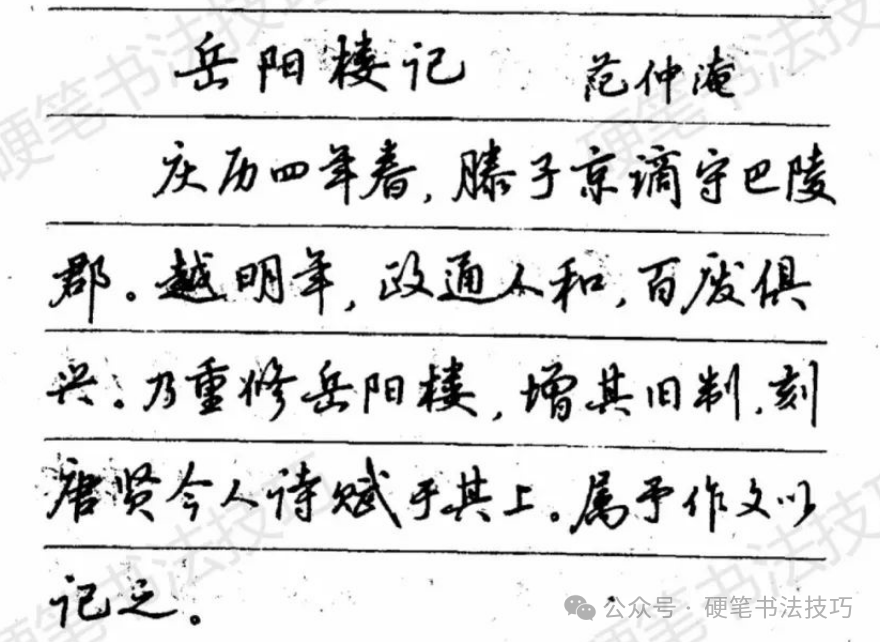 岳阳楼记 范仲淹
庆历四年春,滕子京谪守巴陵
郡。越明年,政通人和,百废俱
兴。乃重修岳阳楼,增其旧制,刻
唐贤今人诗赋于其上。属予作文以
记之。
公众号·硬笔书法技巧
硬笔书法技巧
硬笔书法技巧
硬笔书法技巧
硬笔书法技巧